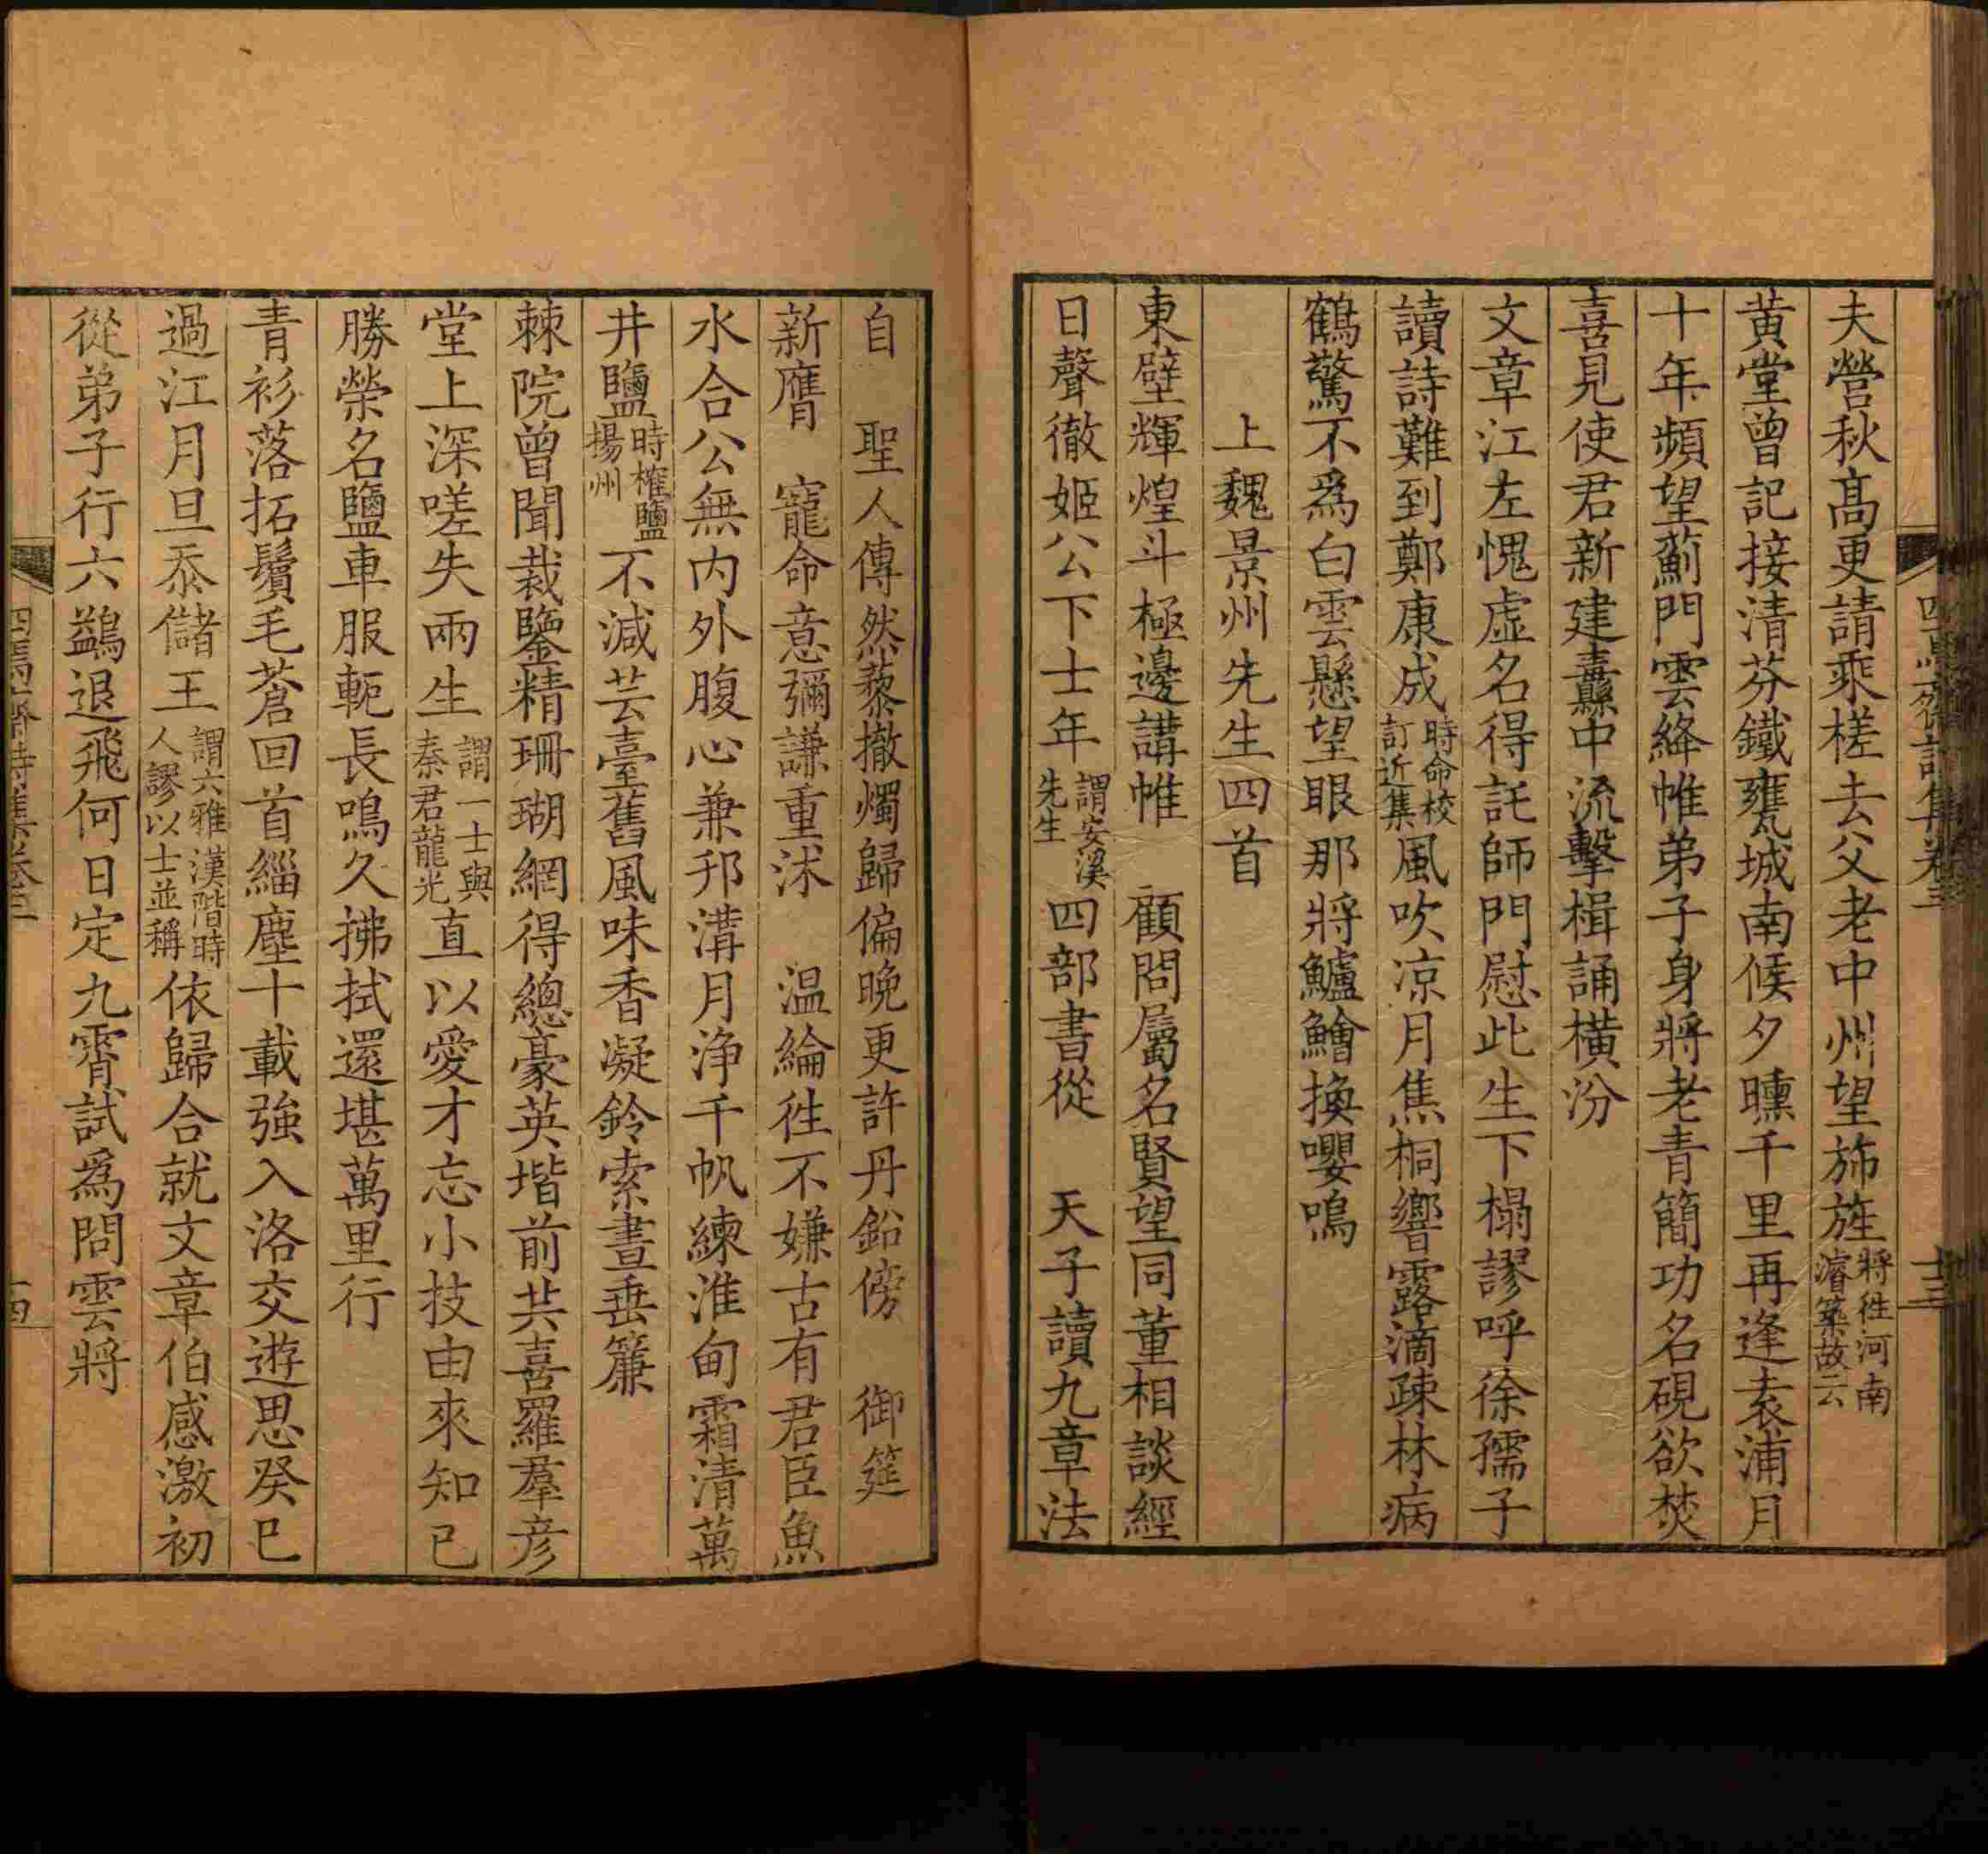 夫營秋高更請乘槎去父老中州望旆旌將徃河南濬築故云
黄堂曾記接清芬鐵甕城南候夕曛千里再逢袁浦月
十年頻望薊門雲絳帷弟子身將老青簡功名硯欲焚
喜見使君新建纛中流擊楫誦橫汾
文章江左愧虛名得託師門慰此生下榻謬呼徐孺子
讀詩難到鄭康成時命校訂近集風吹凉月焦桐響露滴疎林病
鶴驚不爲白雲懸望眼那將鱸鱠換嚶鳴
上魏景州先生四首
東壁輝煌斗極邊講帷　顧問屬名賢望同董相談經
日聲徹姬公下士年謂安溪先生四部書從　天子讀九章法
自　聖人傳然藜撤燭歸偏晚更許丹鉛傍　御筵
新膺　寵命意彌謙重沭　温綸徃不嫌古有君臣魚
水合公無内外腹心兼邗溝月淨千帆練淮甸霜清萬
井鹽時榷鹽揚州不減芸臺舊風味香凝鈴索晝垂簾
棘院曾聞裁鑒精珊瑚網得總豪英堦前共喜羅羣彦
堂上深嗟失兩生謂一士與秦君龍光直以愛才忘小技由來知已
勝榮名鹽車服軛長鳴久拂拭還堪萬里行
青衫落拓鬢毛蒼回首緇塵十載強入洛交遊思癸巳
過江月旦忝儲王謂六雅漢階時人謬以士並稱依歸合就文章伯感激初
從弟子行六鷁退飛何日定九霄試爲問雲將